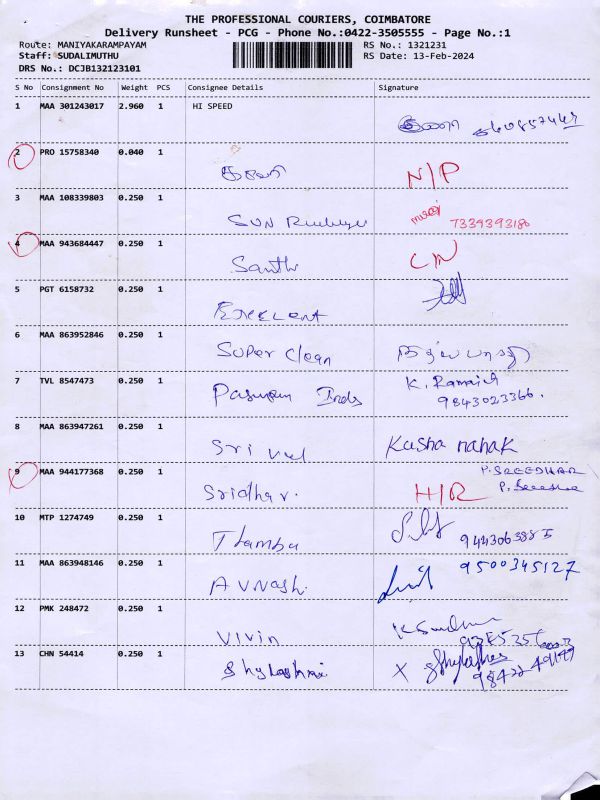 THE PROFESSIONAL COURIERS, COIMBATORE
Delivery Runsheet - PCG - Phone No.:0422-3505555 - Page No.:1
Route: MANIYAKARAMPAYAM RS No.: 1321231
Staff: SUDALIMUTHU RS Date: 13-Feb-2024
DRS No.: DCJB132123101
S No Consignment No Weight PCS Consignee Details Signature
1 MAA 301243017 2.960 1 HI SPEED
2 PRO 15758340 0.040 1
N/P
3 MAA 108339803 0.250 1
SUN 7339393180
4 MAA 943684447 0.250 1
Santhi
5 PGT 6158732 0.250 1
Excellent
6 MAA 863952846 0.250 1
Super Clean
7 TVL 8547473 0.250 1
Inds K. Ramaiah
9843023366.
8 MAA 863947261 0.250 1
Sri Vel Kusha nahak
9 MAA 944177368 0.250 1 P.SREEDHAR
Sridhar. H/R
10 MTP 1274749 0.250 1
Thambu
11 MAA 863948146 0.250 1 9500345127
Avnash.
12 PMK 248472 0.250 1
Vivin
13 CHN 54414 0.250 1
X